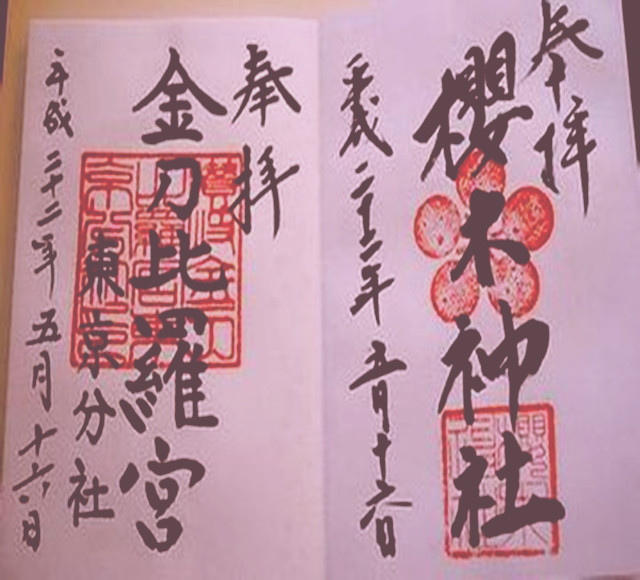 奉拝
櫻木神社
平成二十二年五月十六日
奉拝
金刀比羅宮
東京分社
平成二十二年五月十六日